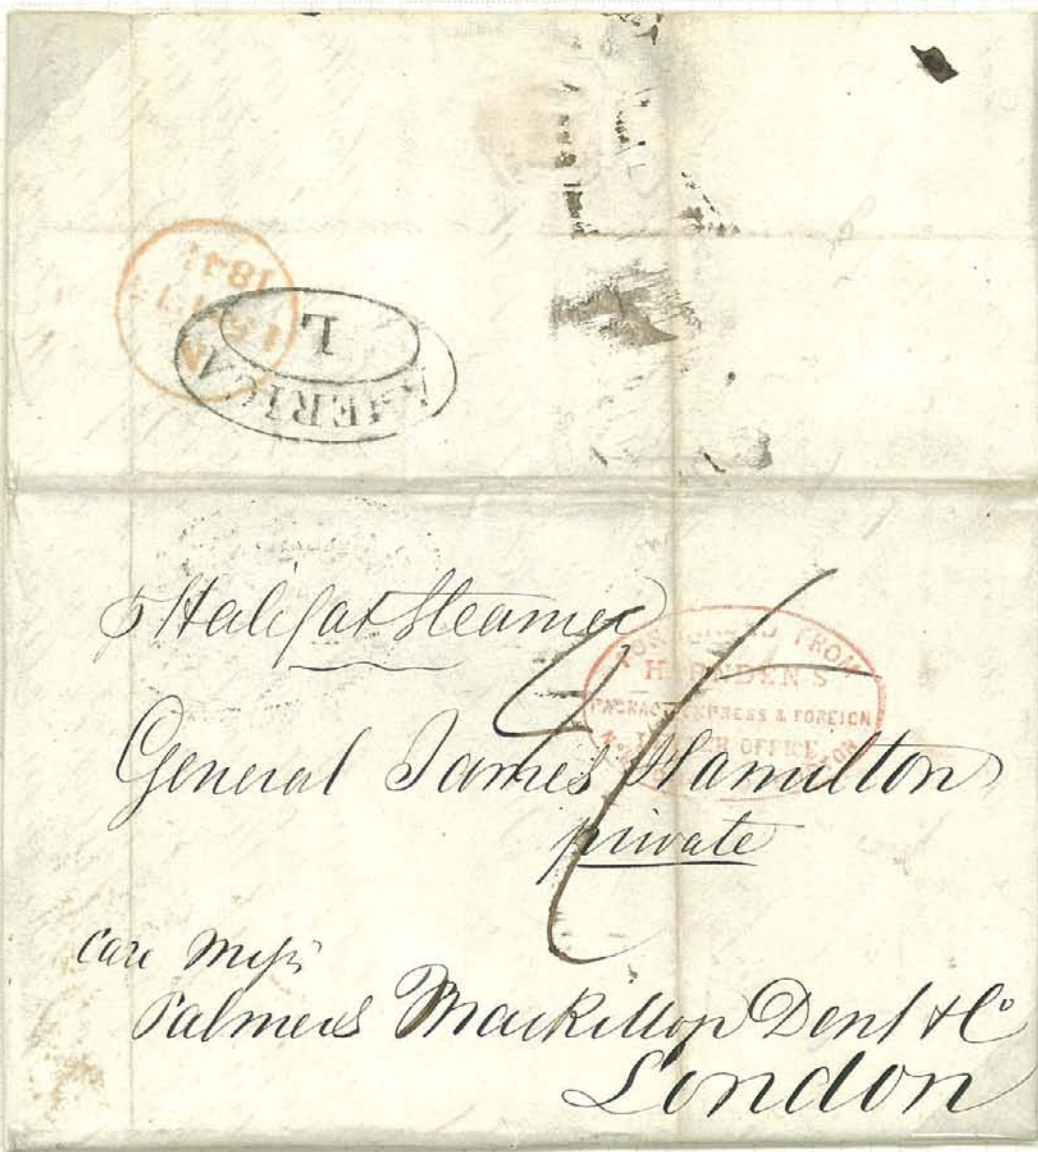 1841
AMERICA
L
p Halifax Steamer
FORWARDED FROM
HARNDEN'S
PACKAGE EXPRESS & FOREIGN
LETTER OFFICE
General James Hamilton
private
Care Messrs
Palmers Mackillop Dent & Co
London